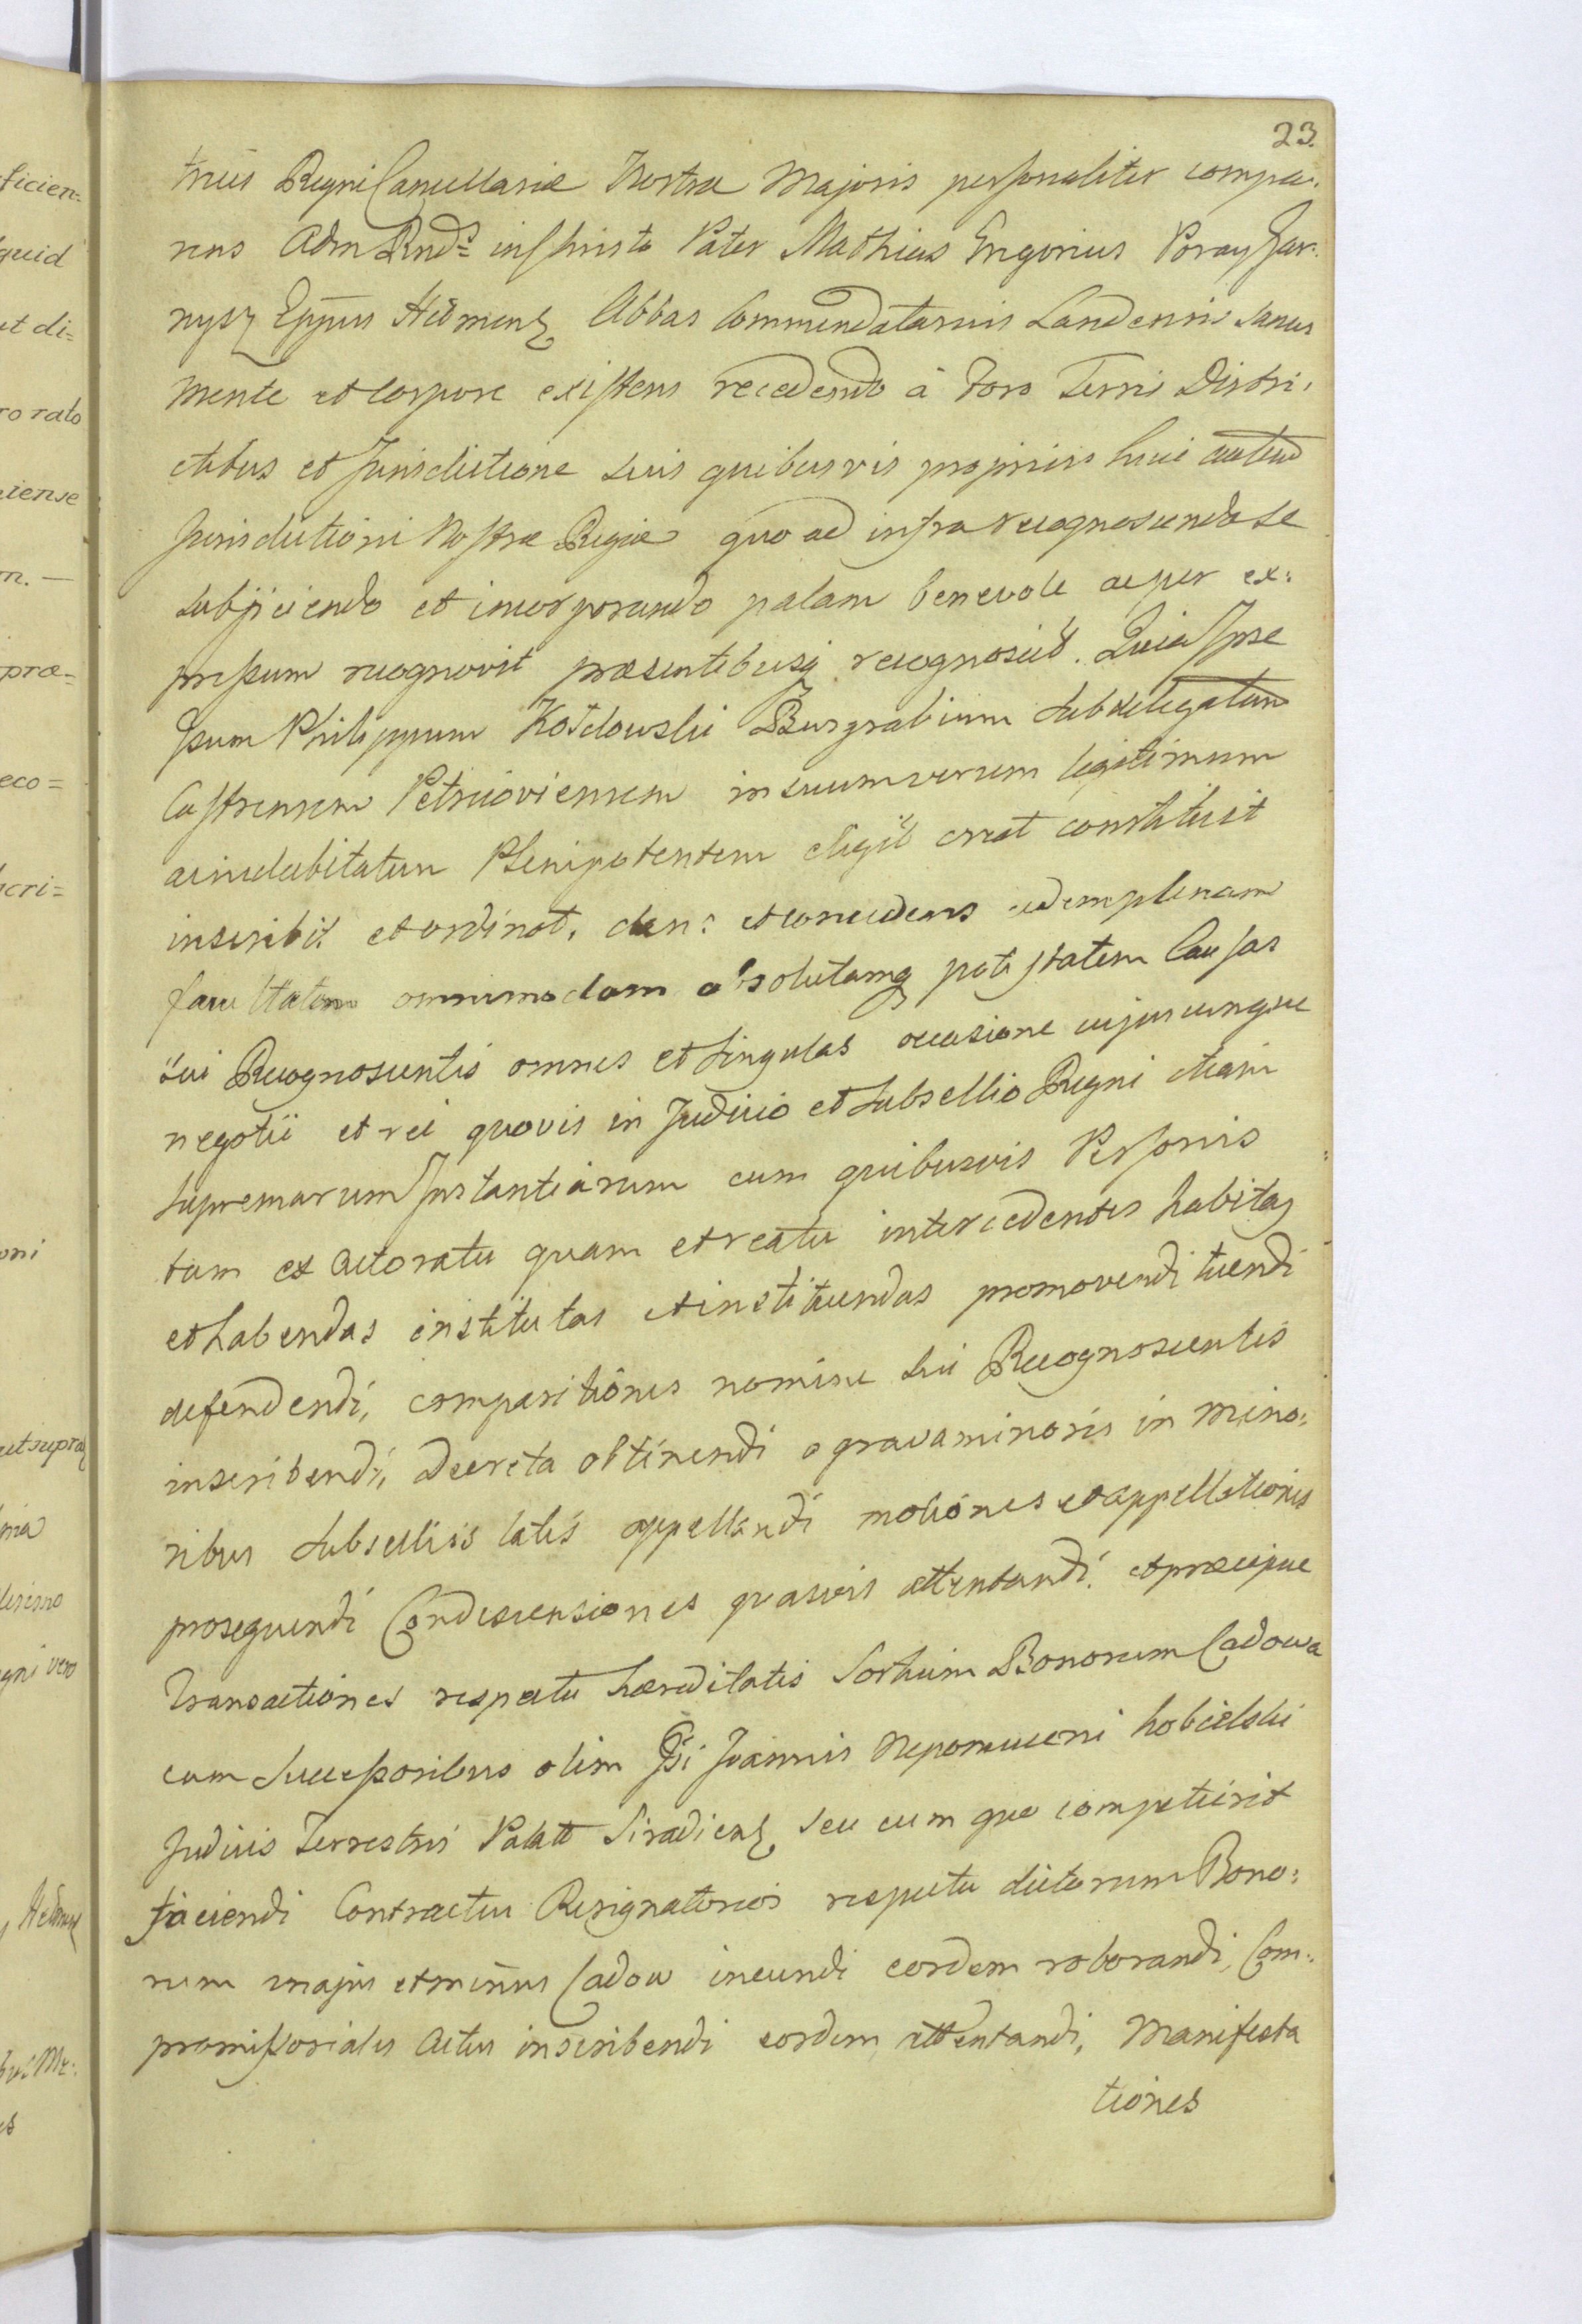 23.
trius Regni Cancellariæ Nostræ Majoris personaliter compa:
rens Adm Rnds in Christo Pater Mathias Gregorius Poray Gar:
nysz Eppus Hebmens Abbas Commendatarius Landensis sanus
mente et Corpore existens recedendo à Foro Terris Distri:
ctibus et Jurisdictione suis quibusvis propriis huic autem
Jurisdictioni Nostræ Regiæ quo ad infra recognoscenda se
subjiciendo et incorporando palam benevole ac per ex:
pressum recognovit præsentibusq recognoscit. Quia Ipse
Gsum Philippum Kołdowski Burgrabium Subdelegatum
Castrensem Petricoviensem in suum verum legitimum
ac indubitatum Plenipotentem eligit creat constituit
inscribit et ordinat, dans et concedens eidem plenam
facultatem omnimodam absolutamq potestatem Causas
sui Recognoscentis omnes et singulas occasione cujuscunque
negotii et rei quovis in Judicio et Subsellio Regni etiam
supremarum Instantiarum cum quibusvis Personis
tam ex actoratu quam et reatu intercedentes habitas
et habendas institutas et instituendas promovendi tuendi
defendendi, comparitiones nomine sui Recognoscentis
inscribendi, decreta obtinendi a gravaminosis in mino:
ribus Subselliis latis appellandi motiones et appellationes
prosequendi Condescensiones quasvis attentandi. et præcipue
Transactiones respectu hæreditatis Sortium Bonorum Cadowa
cum Successoribus olim Gsi Joannis Nepomuceni Kobielski
Judicis Terrestris Palatt Siradiens seu cum quo competierit
faciendi Contractus Resignatorios respectu dictorum Bono:
rum majus et minus Cadow ineundi eosdem roborandi, Com:
promissoriales Actus inscribendi eosdem attentandi, Manifesta
tiones
ficien:
quid
et di=
ro rato
niense
m. —
præ=
eco=
scri=
oni
ut supra
gni vero